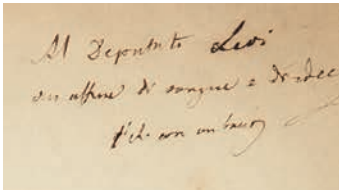 Al Deputato Levi
un affine di sangue e di idee
con un bacio